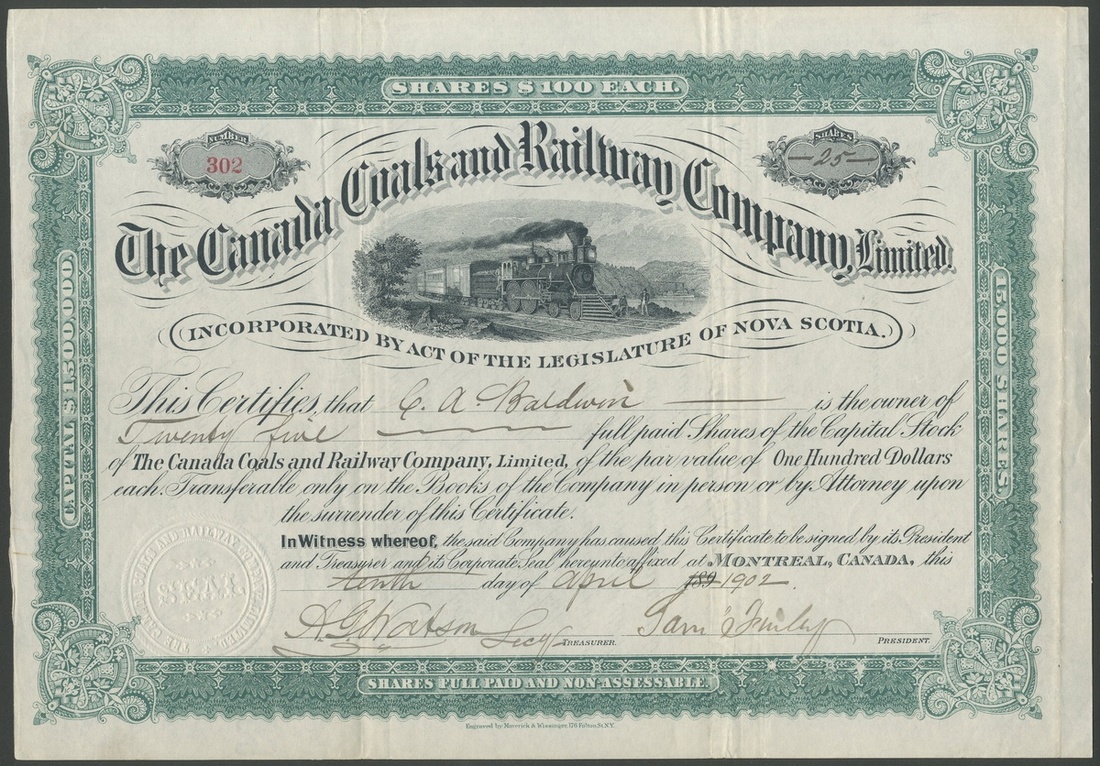 SHARES $100 EACH.
NUMBER
302
SHARES
25
The Canada Coals and Railway Company, Limited.
INCORPORATED BY ACT OF THE LEGISLATURE OF NOVA SCOTIA.
CAPITAL $1,500,000
15,000 SHARES.
This Certifies, that C. A. Baldwin is the owner of
Twenty five full paid Shares of the Capital Stock
of The Canada Coals and Railway Company, Limited, of the par value of One Hundred Dollars
each. Transferable only on the Books of the Company in person or by Attorney upon
the surrender of this Certificate.
In Witness whereof, the said Company has caused this Certificate to be signed by its President
and Treasurer and its Corporate Seal hereunto affixed at MONTREAL, CANADA, this
tenth day of April 189 1902
A G Watson Secy TREASURER. PRESIDENT.
THE CANADA COALS AND RAILWAY COMPANY, LIMITED
SEAL
SHARES FULL PAID AND NON-ASSESSABLE.
Engraved by Maverick & Wissinger, 176 Fulton St. N.Y.